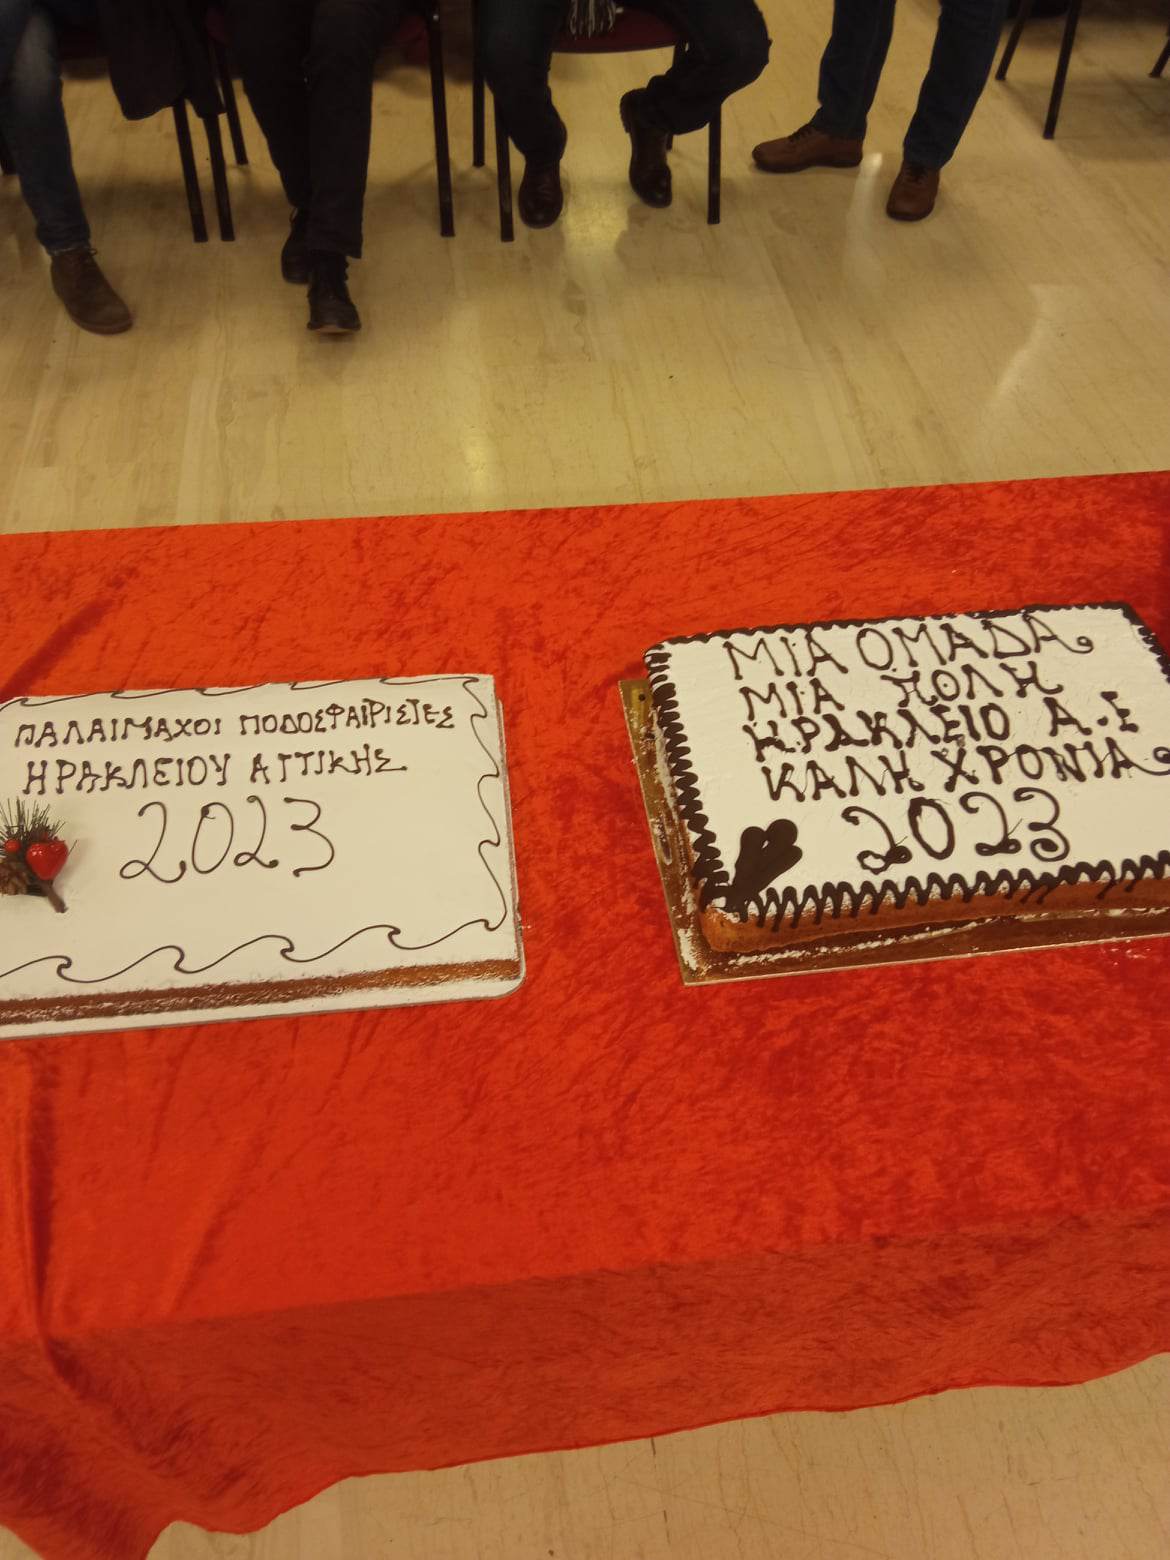 ΠΑΛΑΙΜΑΧΟΙ ΠΟΔΟΣΦΑΙΡΙΣΤΕΣ
ΗΡΑΚΛΕΙΟΥ ΑΤΤΙΚΗΣ
2023
ΜΙΑ ΟΜΑΔΑ
ΜΙΑ ΠΟΛΗ
ΗΡΑΚΛΕΙΟ Α.Ε
ΚΑΛΗ ΧΡΟΝΙΑ
2023